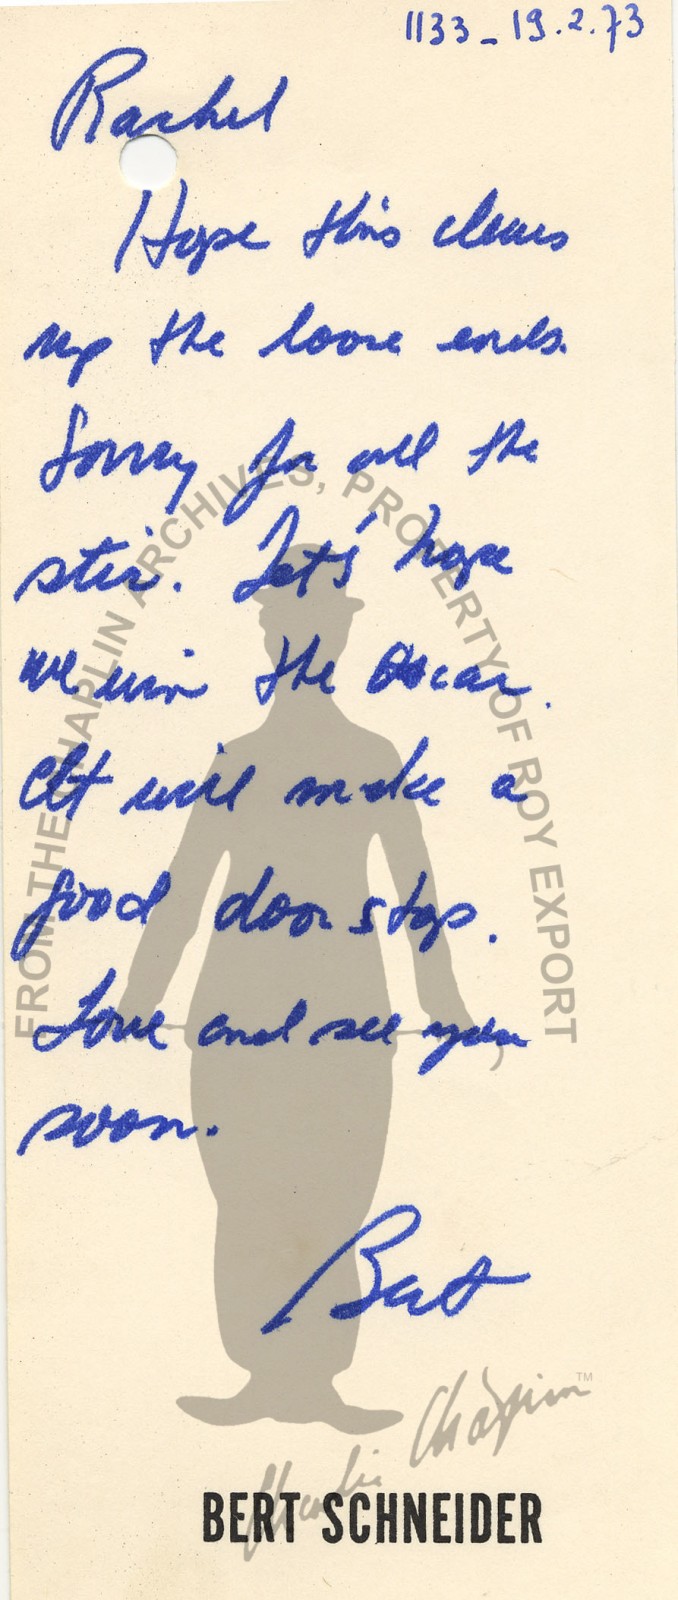 1133_19.2.73
Rachel
Hope this clears
up the loose ends.
Sorry for all the
stir. Let's hope
we win the Oscar.
It will make a
good door stop.
Love and see you
soon.
Bert
FROM THE CHAPLIN ARCHIVES, PROPERTY OF ROY EXPORT
Charlie Chaplin ™
BERT SCHNEIDER